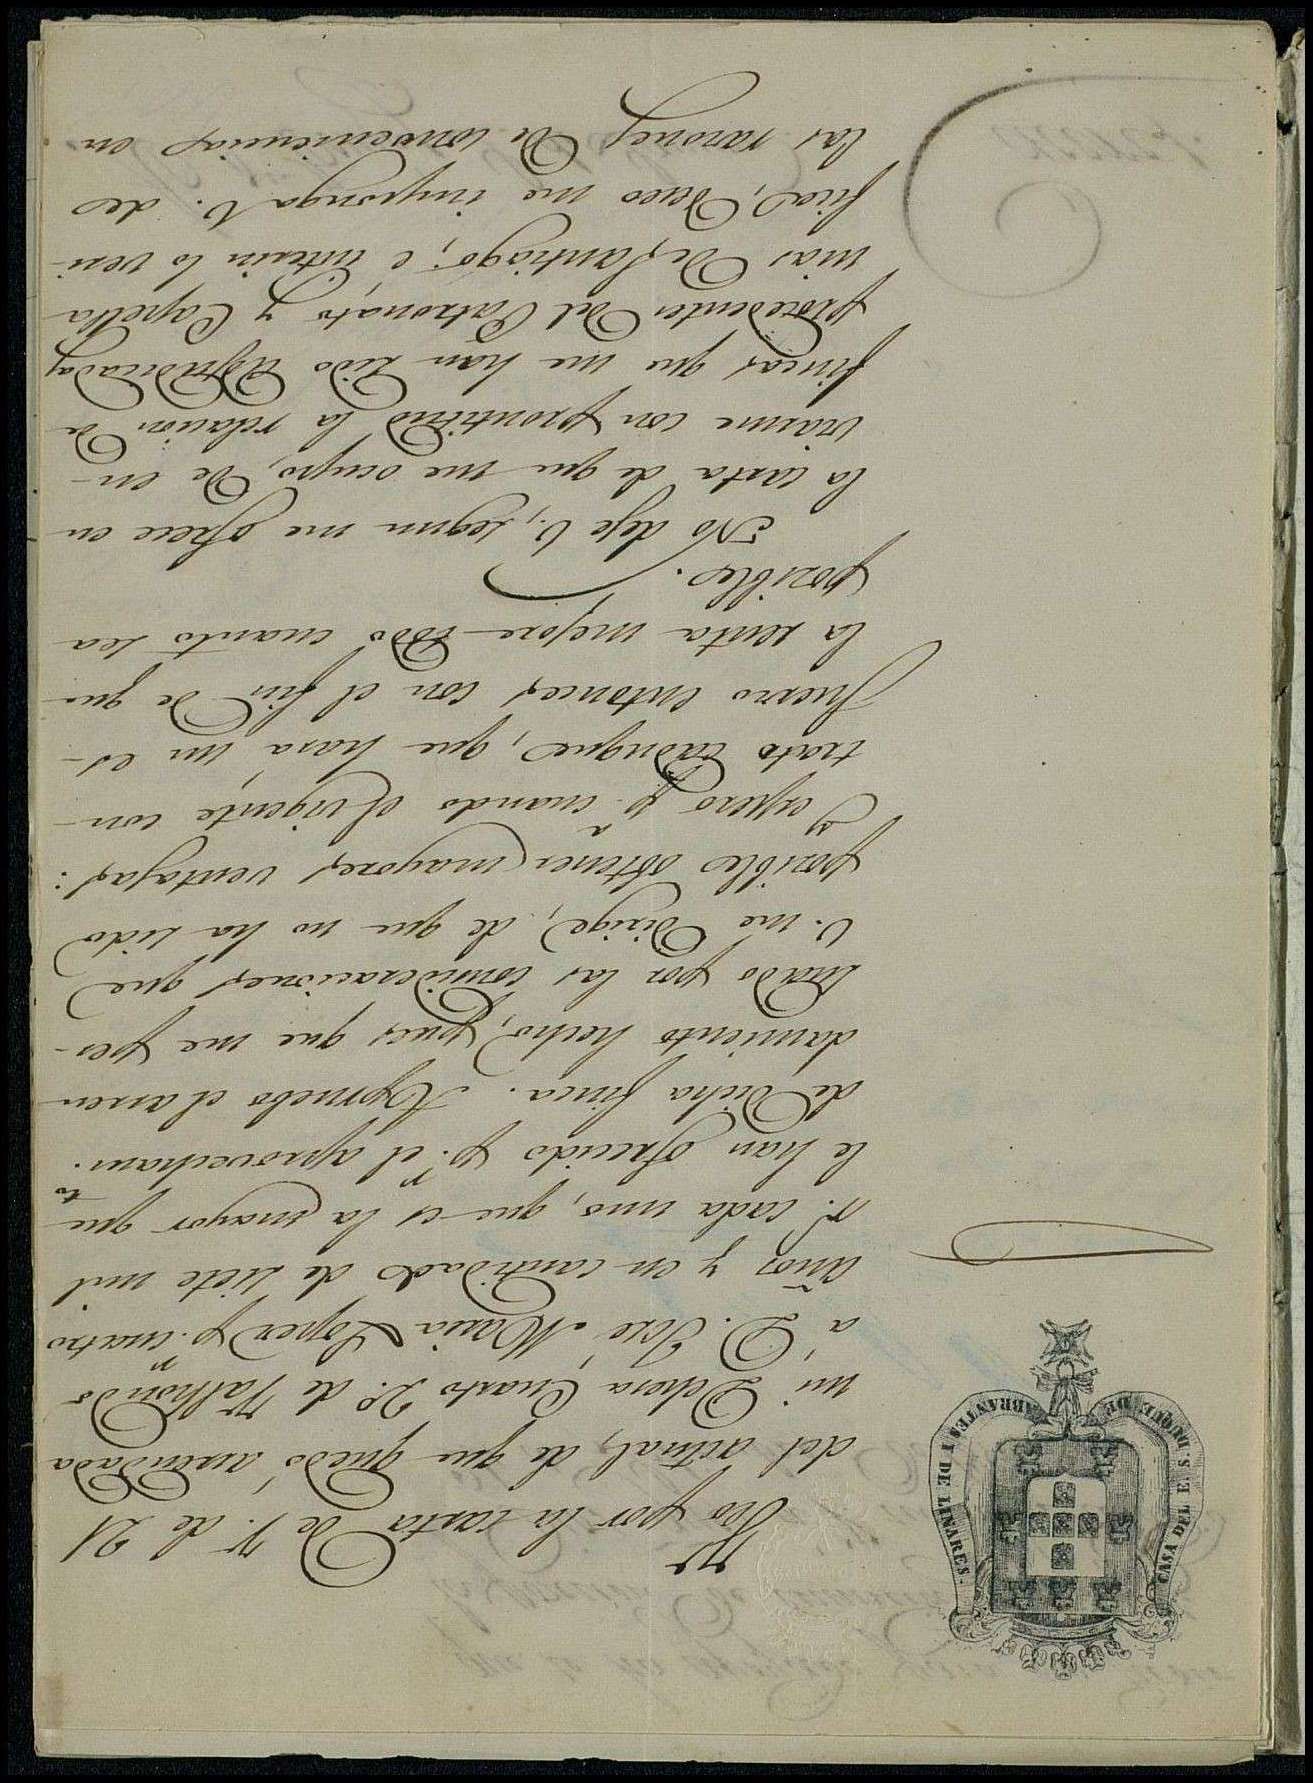 CASA DEL E. S. DUQUE DE ABRANTES I DE LINARES.
Veo por la carta de V. de 21
del actual, de que quedó arrendada
mi Dehesa Cuarto 2º de Valhondo
á D. José María Lopez pr. cuatro
años y en cantidad de siete mil
rs. cada uno, que es la mayor que
le han ofrecido pr. el aprovecham.to
de dicha finca. Apruebo el arren-
damiento hecho, pues que me per-
suado por las consideraciones que
V. me dirige, de que no ha sido
posible obtener mayores ventajas:
y espero pª. cuando el vigente con-
trato caduque, que hará un es-
fuerzo entonces con el fin de que
la renta mejore todo cuanto sea
posible.
No deje V., segun me ofrece en
la carta de que me ocupo, de en-
viarme con prontitud la relacion de
fincas que me han sido adjudicadas
procedentes del Patronato y Capella-
nias de Santiago; é interin lo veri-
fica, deseo me imponga V. de
las razones de conveniencia en